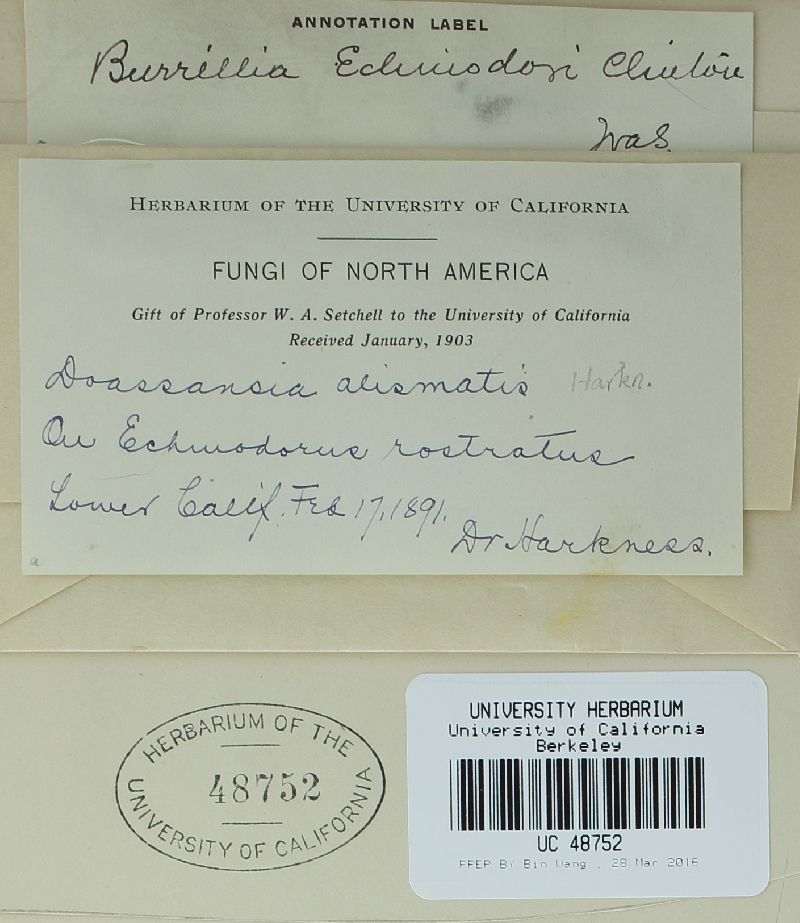 ANNOTATION LABEL
Burrillia Echinodori Clinton
WAS.
HERBARIUM OF THE UNIVERSITY OF CALIFORNIA
FUNGI OF NORTH AMERICA
Gift of Professor W. A. Setchell to the University of California
Received January, 1903
Doassansia alismatis Harkn.
On Echinodorus rostratus
Lower Calif. Feb 17, 1891.
Dr Harkness.
a
HERBARIUM OF THE
48752
UNIVERSITY OF CALIFORNIA
UNIVERSITY HERBARIUM
University of California
Berkeley
UC 48752
PREP By Bin Wang , 28 Mar 2016